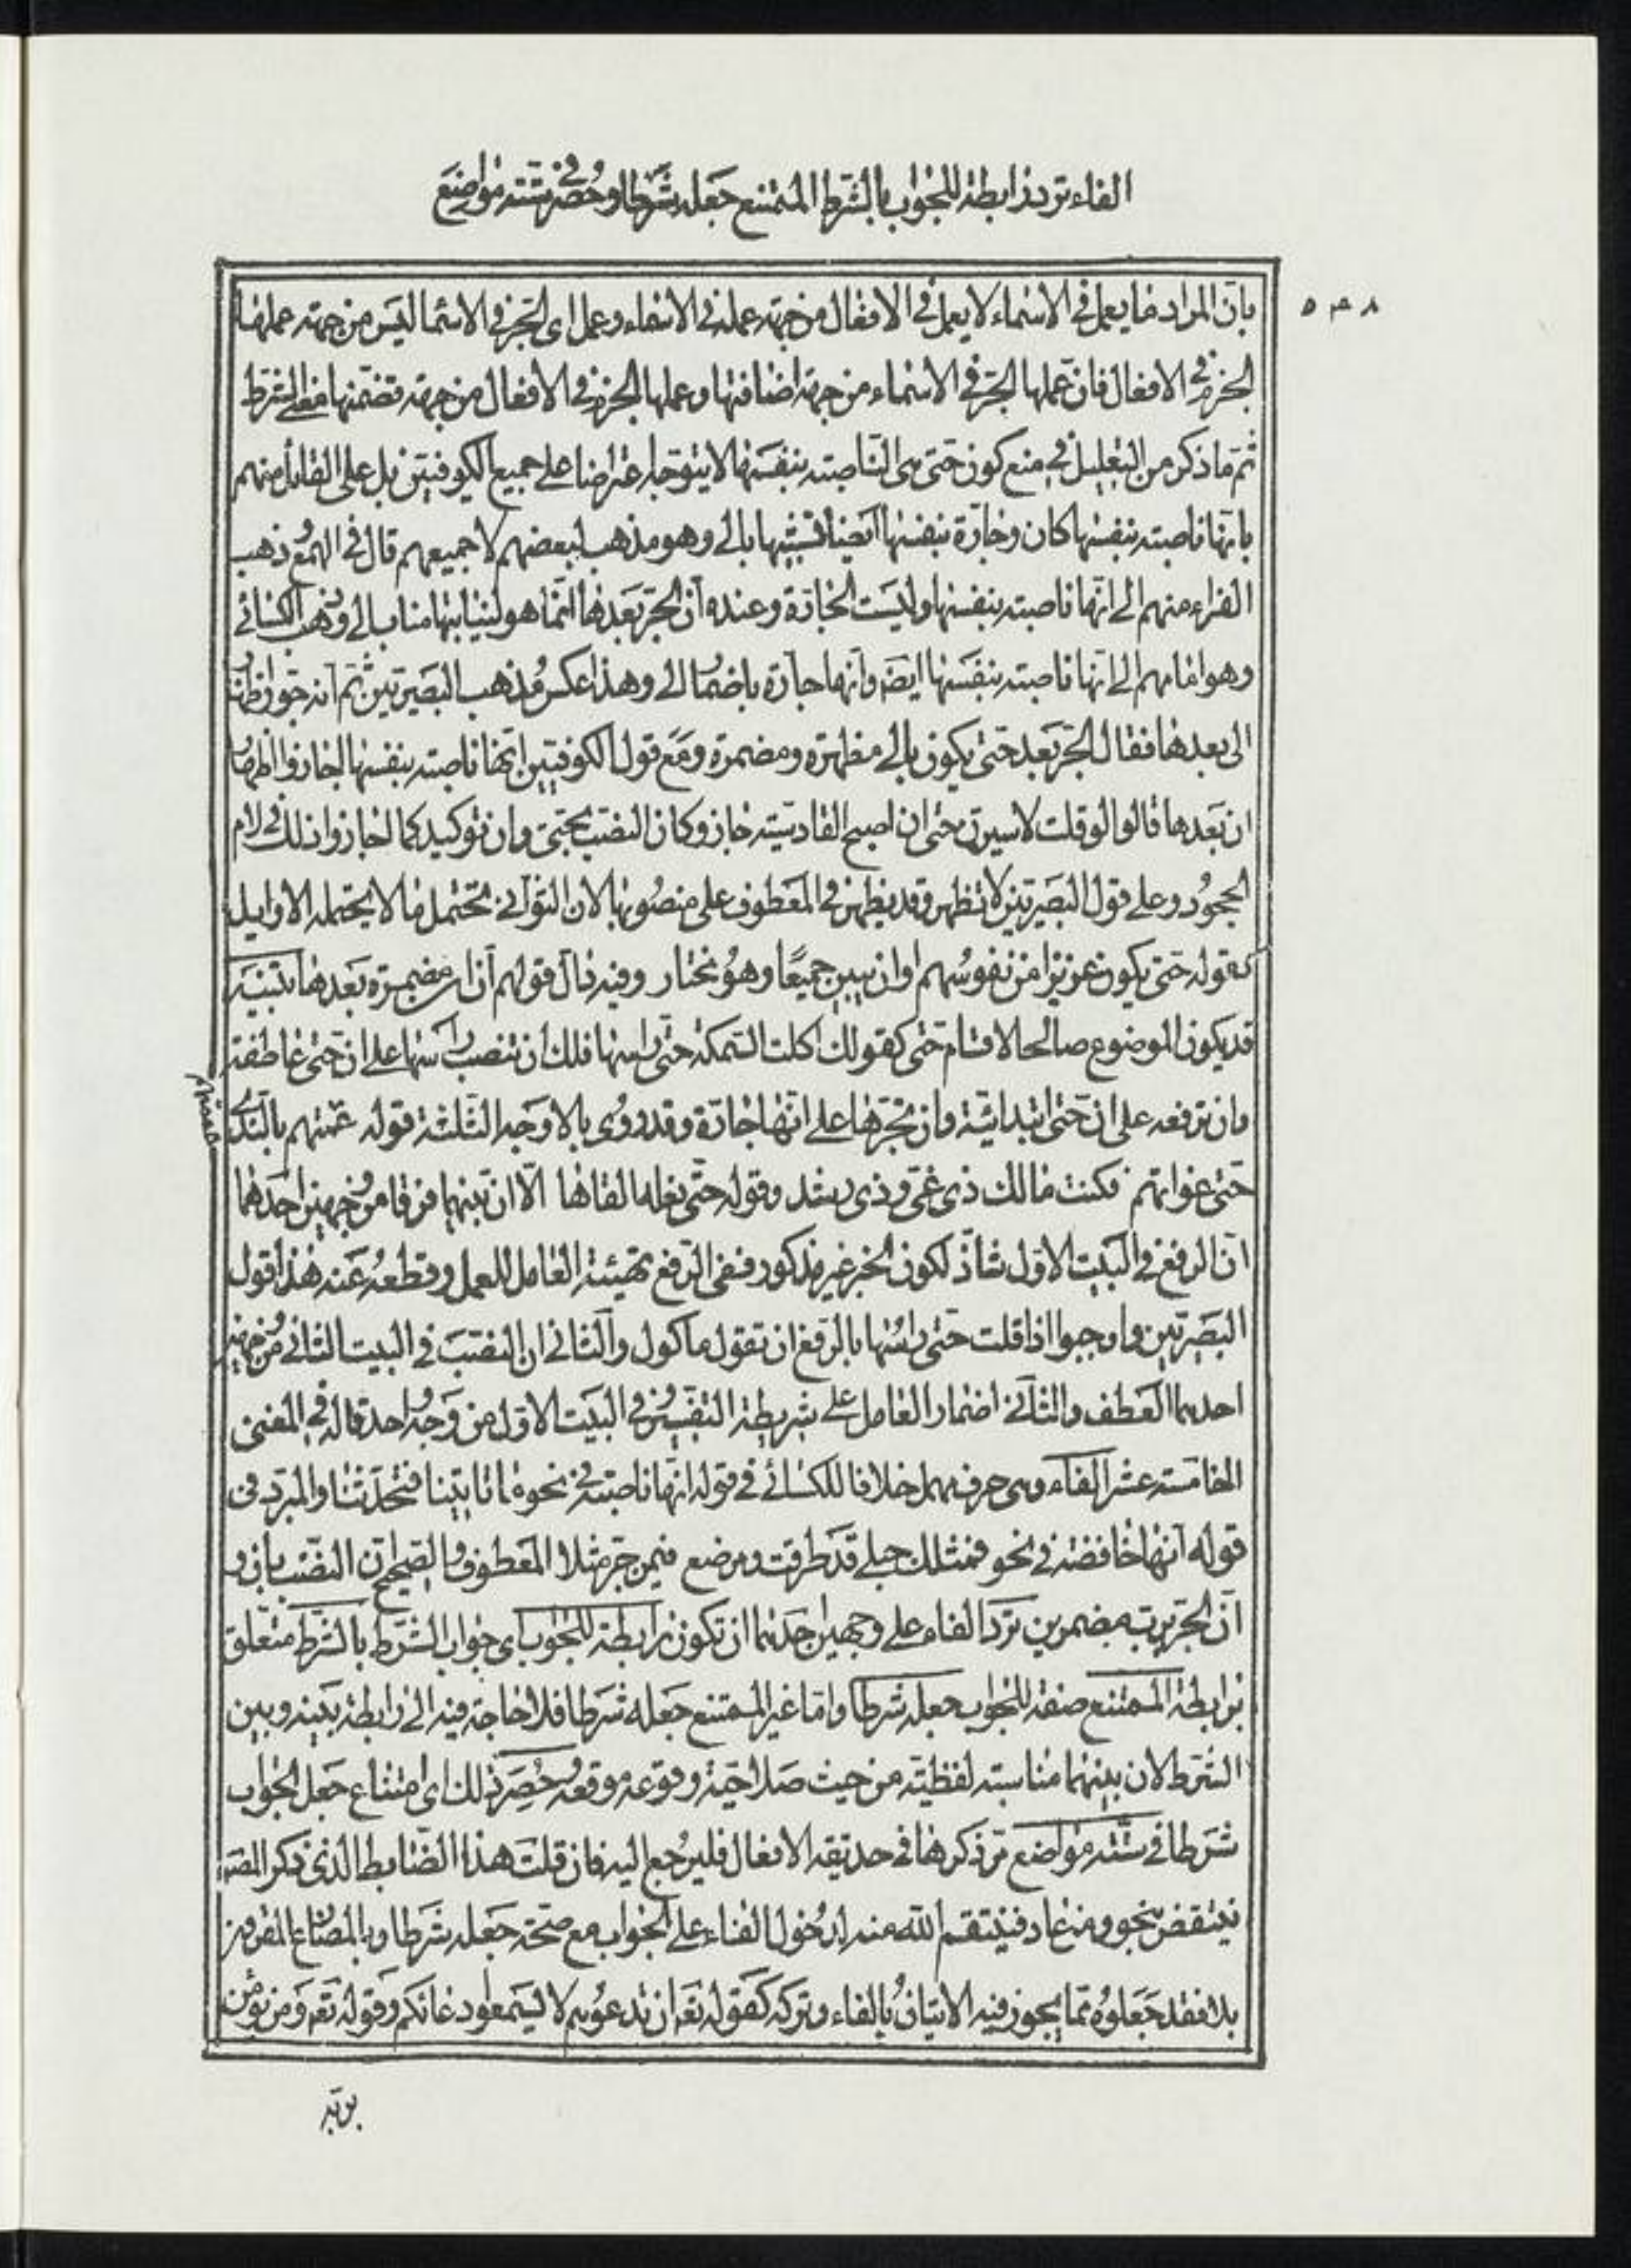 الفاء ترد رابطة للجواب بالشرط الممتنع جعله شرطا وحصر في ستة مواضع
٥٣٨
بان المراد ما يعمل في الاسماء لا يعمل في الافعال من جهة عمله في الاسماء وعمل اى الجر في الاسماء ليس من جهة عملها
الجزم في الافعال فان عملها الجر في الاسماء من جهة اضافتها وعملها الجزم في الافعال من جهة تضمنها معنى الشرط
ثم ما ذكر من التعليل في منع كون حتى هى الناصبة بنفسها لا يتوجه اعتراضا على جميع الكوفيين بل على القائل منهم
بانها ناصبة بنفسها كان وجارة بنفسها ايضا تشبيها بالى وهو مذهب لبعضهم لا جميعهم قال في الهمع ذهب
الفراء منهم الى انها ناصبة بنفسها وليست الجارة وعنده ان الجر بعدها انما هو لنيابتها مناب الى وذهب الكسائى
وهو امامهم الى انها ناصبة بنفسها ايضا وانها جارة باضمار الى وهذا عكس مذهب البصريين ثم انه جوز اظهار
الى بعدها فقال الجر بعد حتى يكون بالى مظهرة ومضمرة ومع قول الكوفيين انها ناصبة بنفسها اجازوا اظهار
ان بعدها قالوا لو قلت لاسيرن حتى ان اصبح القادسية جاز وكان النصب بحتى وان توكيد كما اجازوا ذلك في لام
الجحود وعلى قول البصريين لا تظهر وقد يظهر في المعطوف على منصوبها لان الثوانى تحتمل ما لا يحتمله الاوايل
كقوله حتى يكون عزيزا من نفوسهم او ان يبين جميعا وهو مختار وفيه قال قولهم ان ان مضمرة بعدها تنبيه
قد يكون الموضوع صالحا لاقسام حتى كقولك اكلت السمكة حتى راسها فلك ان تنصب راسها على ان حتى عاطفة
وان ترفعه على ان حتى ابتدائية وان تجرها على انها جارة وقد روى بالاوجه الثلثة قوله عممتهم بالندى
حتى غواتهم فكنت مالك ذى غى وذى رشد وقوله حتى نعله القاها الا ان بينهما فرقا من وجهين احدهما
ان الرفع في البيت الاول شاذ لكون الخبر غير مذكور ففى الرفع تهيئة العامل للعمل وقطعه عنه هذا قول
البصريين واوجبوا اذا قلت حتى راسها بالرفع ان تقول ماكول والثانى ان النصب في البيت الثانى من وجهين
احدهما العطف والثانى اضمار العامل على شريطة التفسير وفى البيت الاول من وجه واحد قاله في المغنى
الخامسة عشر الفاء وهى حرف مهمل خلافا للكسائى في قوله انها ناصبة في نحو ما تاتينا فتحدثنا والمبرد فى
قوله انها خافضة في نحو فمثلك حبلى قد طرقت ومرضع فيمن جر مثلا المعطوف والصحيح ان النصب بان و
ان الجر برب مضمرين ترد الفاء على وجهين احدهما ان تكون رابطة للجواب اى جواب الشرط بالشرط متعلق
برابطة الممتنع صفة للجواب جعله شرطا واما غير الممتنع جعله شرطا فلا حاجة فيه الى رابطة بينه وبين
الشرط لان بينهما مناسبة لفظية من حيث صلاحية وقوعه موقعه وحصر ذلك اى امتناع جعل الجواب
شرطا في ستة مواضع مر ذكرها في حديقة الافعال فليرجع اليه فان قلت هذا الضابط الذى ذكر المصـ
ينتقض بنحو ومن عاد فينتقم الله منه لدخول الفاء على الجواب مع صحة جعله شرطا وبالمضارع المقرون
بلا فقد جعلوه مما يجوز فيه الاتيان بالفاء وتركه كقوله تعـ ان تدعوهم لا يسمعوا دعائكم وقوله تعـ ومن يؤمن
بربه